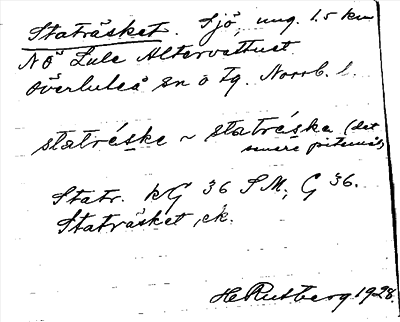 Staträsket. Sjö, ung. 1.5 km
NÖ Lule Altervattnet.
Överluleå sn o tg. Norrb. l.
statréske ~ statréska (det
senare pitemål)
Statr. kG 36 SM; G 36.
Staträsket, ek.
H Rutberg 1928.